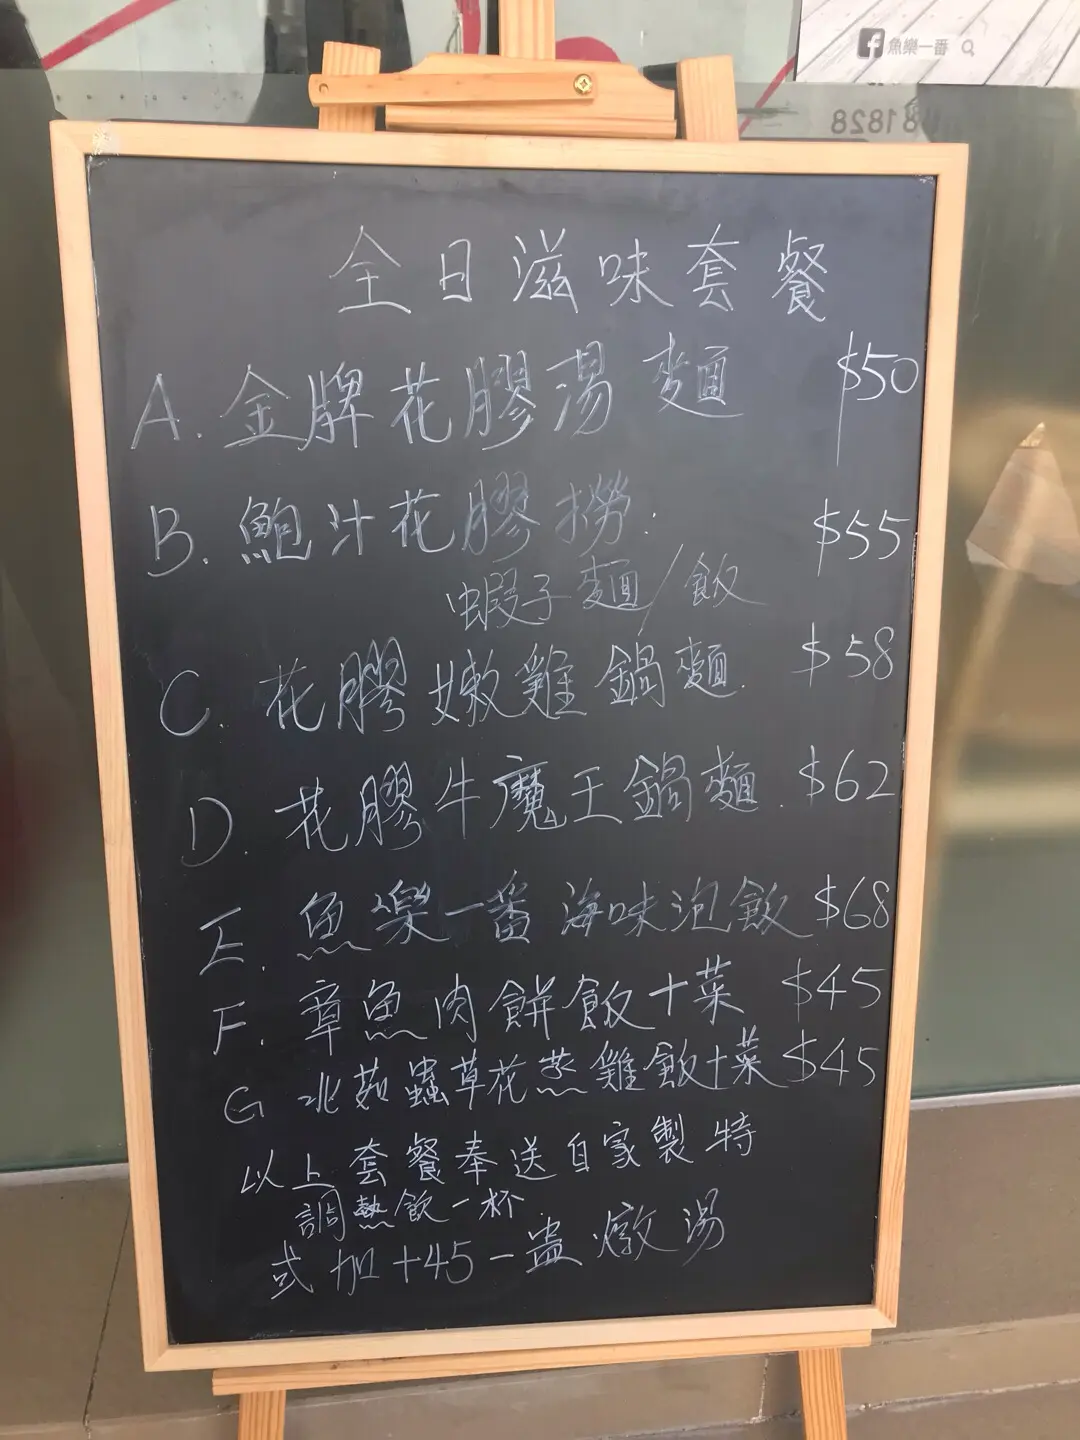 魚樂一番
81828
全日滋味套餐
A. 金牌花膠湯麵 $50
B. 鮑汁花膠撈: $55
蝦子麵/飯
C. 花膠嫩雞鍋麵. $58
D. 花膠牛魔王鍋麵. $62
E. 魚樂一番海味泡飯 $68
F. 章魚肉餅飯+菜 $45
G 北菇蟲草花蒸雞飯+菜 $45
以上套餐奉送自家製特
調熱飲一杯.
或加+45一盅燉湯